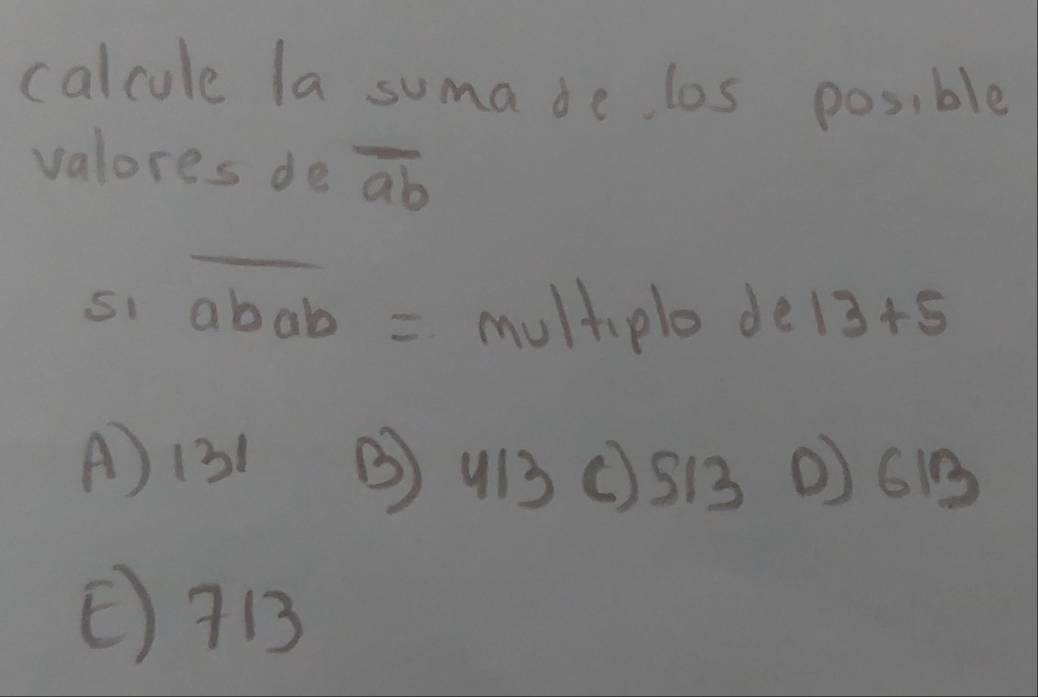 calcule la suma de los posible
valores de ab
si abab = multiplo de 13+5
A) 131 B) 413 C) 513 D) 613
E) 713